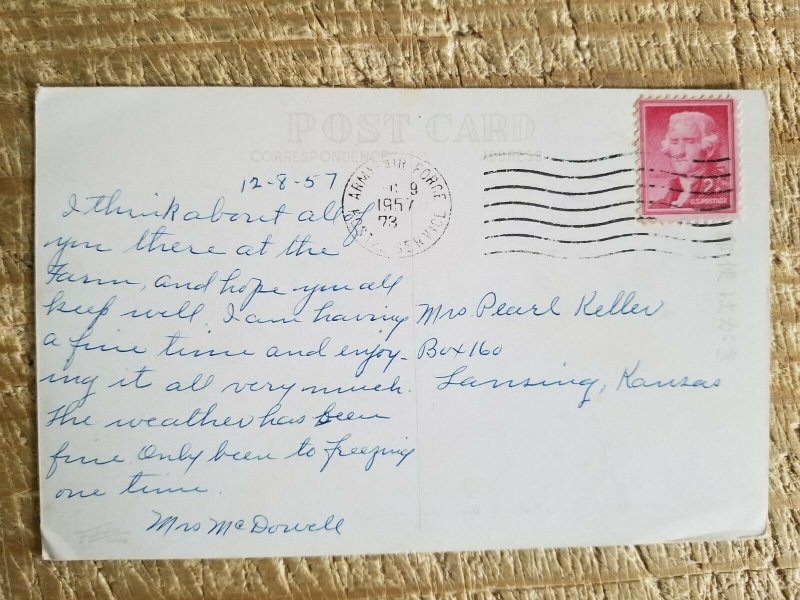 POST CARD
CORRESPONDENCE ADDRESS
12-8-57
ARMY-AIR FORCE
POSTAL SERVICE
9
1957
73
2¢
U.S. POSTAGE
I think about all of
you there at the
Farm, and hope you all
keep well. I am having
a fine time and enjoy-
ing it all very much.
The weather has been
fine. Only been to freezing
one time.
Mrs McDowell
Mrs. Pearl Keller
Box 160
Lansing, Kansas